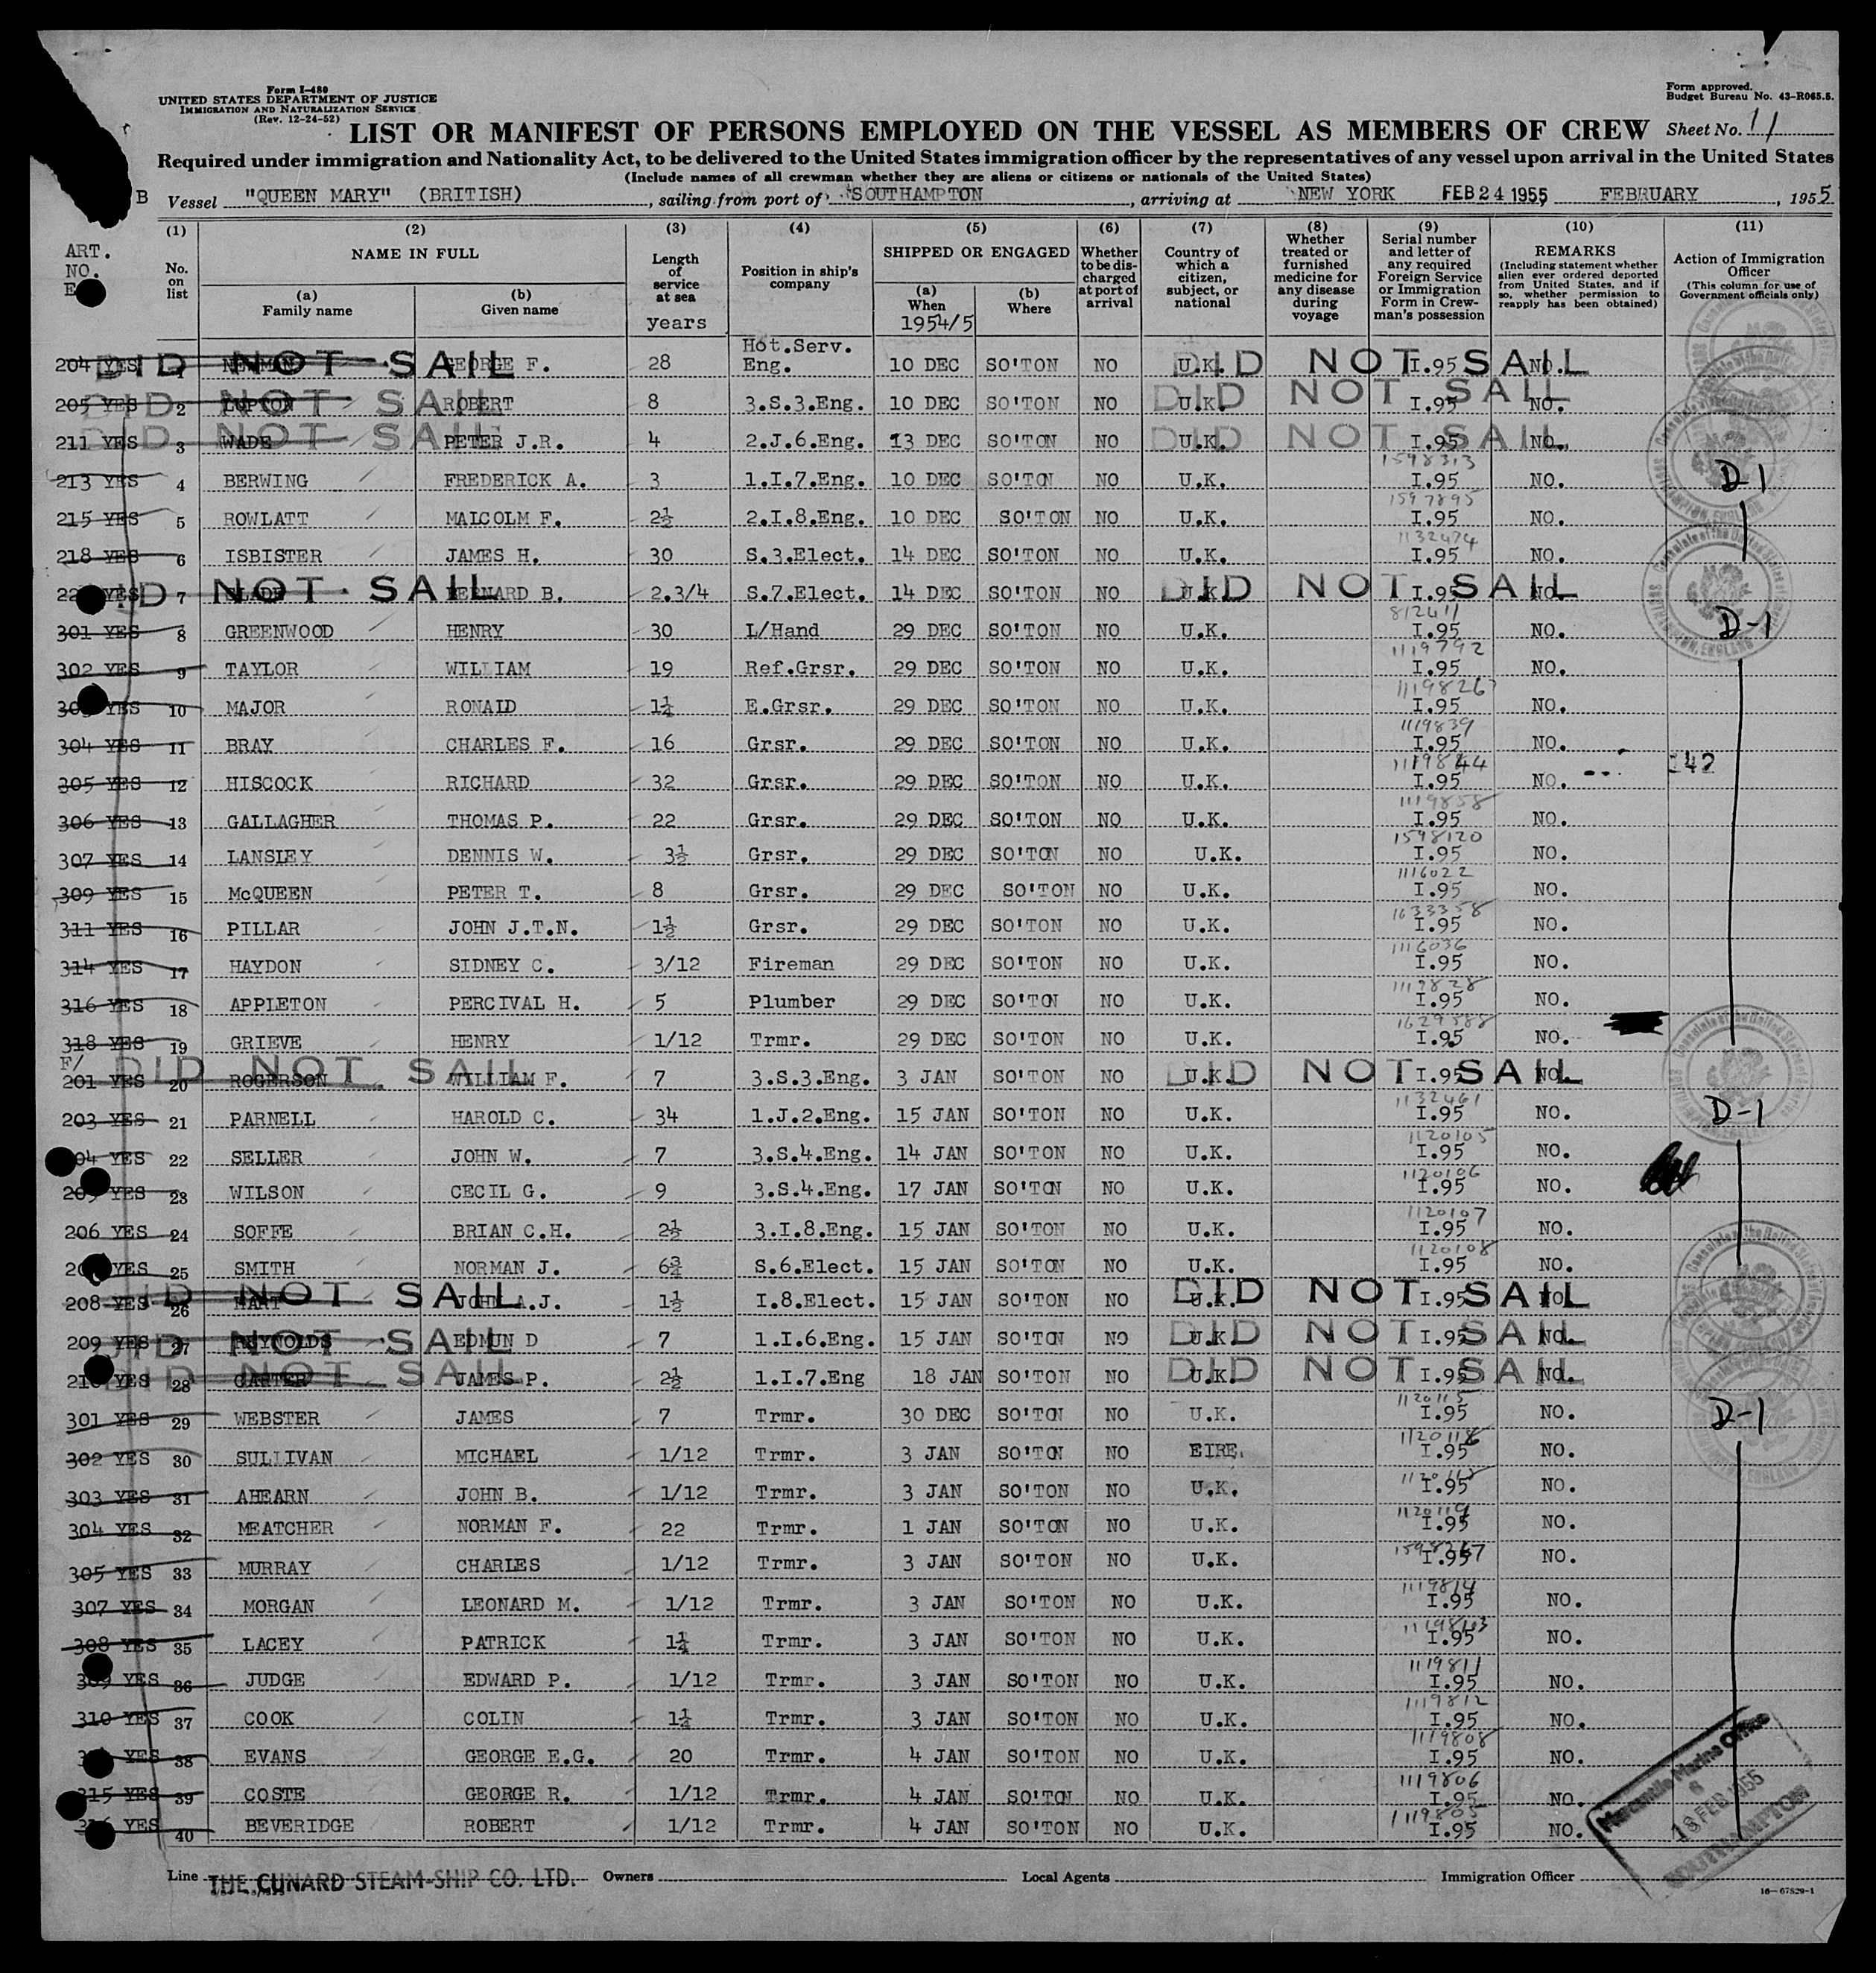 Form I-480
UNITED STATES DEPARTMENT OF JUSTICE
IMMIGRATION AND NATURALIZATION SERVICE
(Rev. 12-24-52)
Form approved.
Budget Bureau No. 43-R065.5.
LIST OR MANIFEST OF PERSONS EMPLOYED ON THE VESSEL AS MEMBERS OF CREW Sheet No. 11
Required under immigration and Nationality Act, to be delivered to the United States immigration officer by the representatives of any vessel upon arrival in the United States
(Include names of all crewman whether they are aliens or citizens or nationals of the United States)
B Vessel "QUEEN MARY" (BRITISH), sailing from port of SOUTHAMPTON, arriving at NEW YORK FEB 24 1955 FEBRUARY, 1955
ART. NO.
(1) No. on list
(2) NAME IN FULL (a) Family name (b) Given name
(3) Length of service at sea years
(4) Position in ship's company
(5) SHIPPED OR ENGAGED (a) When 1954/5 (b) Where
(6) Whether to be discharged at port of arrival
(7) Country of which a citizen, subject, or national
(8) Whether treated or furnished medicine for any disease during voyage
(9) Serial number and letter of any required Foreign Service or Immigration Form in Crewman's possession
(10) REMARKS (Including statement whether alien ever ordered deported from United States, and if so, whether permission to reapply has been obtained)
(11) Action of Immigration Officer (This column for use of Government officials only)
204 YES 1 GEORGE F. 28 Hot.Serv. Eng. 10 DEC SO'TON NO U.K. I.95 NO. DID NOT SAIL DID NOT SAIL
205 YES 2 LUPTON ROBERT 8 3.S.3.Eng. 10 DEC SO'TON NO U.K. I.95 NO. DID NOT SAIL DID NOT SAIL
211 YES 3 WADE PETER J.R. 4 2.J.6.Eng. 13 DEC SO'TON NO U.K. I.95 NO. DID NOT SAIL DID NOT SAIL
213 YES 4 BERWING FREDERICK A. 3 1.I.7.Eng. 10 DEC SO'TON NO U.K. 1598313 I.95 NO. D-1
215 YES 5 ROWLATT MALCOLM F. 2½ 2.I.8.Eng. 10 DEC SO'TON NO U.K. 1597895 I.95 NO.
218 YES 6 ISBISTER JAMES H. 30 S.3.Elect. 14 DEC SO'TON NO U.K. 1132474 I.95 NO.
YES 7 BERNARD B. 2.3/4 S.7.Elect. 14 DEC SO'TON NO U.K. I.95 NO. DID NOT SAIL DID NOT SAIL
301 YES 8 GREENWOOD HENRY 30 L/Hand 29 DEC SO'TON NO U.K. 812411 I.95 NO. D-1
302 YES 9 TAYLOR WILLIAM 19 Ref.Grsr. 29 DEC SO'TON NO U.K. 1119792 I.95 NO.
YES 10 MAJOR RONALD 1¼ E.Grsr. 29 DEC SO'TON NO U.K. 1119826 I.95 NO.
304 YES 11 BRAY CHARLES F. 16 Grsr. 29 DEC SO'TON NO U.K. 1119839 I.95 NO.
305 YES 12 HISCOCK RICHARD 32 Grsr. 29 DEC SO'TON NO U.K. 1119844 I.95 NO. 42
306 YES 13 GALLAGHER THOMAS P. 22 Grsr. 29 DEC SO'TON NO U.K. 1119858 I.95 NO.
307 YES 14 LANSLEY DENNIS W. 3½ Grsr. 29 DEC SO'TON NO U.K. 1598120 I.95 NO.
309 YES 15 McQUEEN PETER T. 8 Grsr. 29 DEC SO'TON NO U.K. 1116022 I.95 NO.
311 YES 16 PILLAR JOHN J.T.N. 1½ Grsr. 29 DEC SO'TON NO U.K. 1633358 I.95 NO.
314 YES 17 HAYDON SIDNEY C. 3/12 Fireman 29 DEC SO'TON NO U.K. 1116036 I.95 NO.
316 YES 18 APPLETON PERCIVAL H. 5 Plumber 29 DEC SO'TON NO U.K. 1119828 I.95 NO.
318 YES 19 GRIEVE HENRY 1/12 Trmr. 29 DEC SO'TON NO U.K. 1629588 I.95 NO.
F/
201 YES 20 ROGERSON WILLIAM F. 7 3.S.3.Eng. 3 JAN SO'TON NO U.K. I.95 NO. DID NOT SAIL DID NOT SAIL
203 YES 21 PARNELL HAROLD C. 34 1.J.2.Eng. 15 JAN SO'TON NO U.K. 1132461 I.95 NO. D-1
04 YES 22 SELLER JOHN W. 7 3.S.4.Eng. 14 JAN SO'TON NO U.K. 1120105 I.95 NO.
205 YES 23 WILSON CECIL G. 9 3.S.4.Eng. 17 JAN SO'TON NO U.K. 1120106 I.95 NO.
206 YES 24 SOFFE BRIAN C.H. 2½ 3.I.8.Eng. 15 JAN SO'TON NO U.K. 1120107 I.95 NO.
YES 25 SMITH NORMAN J. 6¾ S.6.Elect. 15 JAN SO'TON NO U.K. 1120108 I.95 NO.
208 YES 26 HART JOHN A.J. 1½ I.8.Elect. 15 JAN SO'TON NO U.K. I.95 NO DID NOT SAIL DID NOT SAIL
209 YES 27 REYNOLDS EDMUN D 7 1.I.6.Eng. 15 JAN SO'TON NO U.K. I.95 NO. DID NOT SAIL DID NOT SAIL
YES 28 CARTER JAMES P. 2½ 1.I.7.Eng 18 JAN SO'TON NO U.K. I.95 NO. DID NOT SAIL DID NOT SAIL
301 YES 29 WEBSTER JAMES 7 Trmr. 30 DEC SO'TON NO U.K. 1120115 I.95 NO. D-1
302 YES 30 SULLIVAN MICHAEL 1/12 Trmr. 3 JAN SO'TON NO EIRE. 1120116 I.95 NO.
303 YES 31 AHEARN JOHN B. 1/12 Trmr. 3 JAN SO'TON NO U.K. I.95 NO.
304 YES 32 MEATCHER NORMAN F. 22 Trmr. 1 JAN SO'TON NO U.K. 1120119 I.95 NO.
305 YES 33 MURRAY CHARLES 1/12 Trmr. 3 JAN SO'TON NO U.K. I.95 NO.
307 YES 34 MORGAN LEONARD M. 1/12 Trmr. 3 JAN SO'TON NO U.K. 1119814 I.95 NO.
308 YES 35 LACEY PATRICK 1¼ Trmr. 3 JAN SO'TON NO U.K. I.95 NO.
309 YES 36 JUDGE EDWARD P. 1/12 Trmr. 3 JAN SO'TON NO U.K. 1119811 I.95 NO.
310 YES 37 COOK COLIN 1¼ Trmr. 3 JAN SO'TON NO U.K. 1119812 I.95 NO.
YES 38 EVANS GEORGE E.G. 20 Trmr. 4 JAN SO'TON NO U.K. 1119808 I.95 NO.
315 YES 39 COSTE GEORGE R. 1/12 Trmr. 4 JAN SO'TON NO U.K. 1119806 I.95 NO.
YES 40 BEVERIDGE ROBERT 1/12 Trmr. 4 JAN SO'TON NO U.K. 1119805 I.95 NO.
Mercantile Marine Office
18 FEB 1955
SOUTHAMPTON
Line THE CUNARD STEAM-SHIP CO. LTD. Owners Local Agents Immigration Officer
16—67829-1